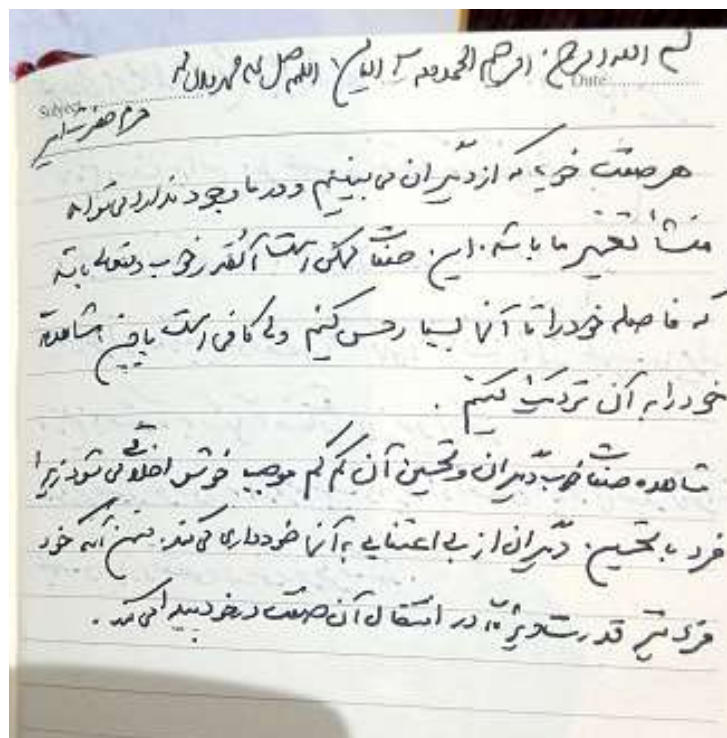 بسم الله الرحمن الرحیم الحمدلله رب العالمین اللهم صل علی محمد وآل محمد
Date
Subject
حرم حضرت امیر
هر صفت خوب که از دیگران می بینیم و در ما وجود ندارد می تواند
منشأ تغییر ما باشد. این صفات ممکن است آنقدر خوب و متعالی باشد
که فاصله خود را تا آنها بسیار حس کنیم ولی کافی است با این مشاهده
خود را به آن نزدیک کنیم.
مشاهده صفات خوب دیگران و تحسین آن کم کم موجب خوش اخلاقی می شود زیرا
فرد با تحسین دیگران از بی اعتنایی به آنها خودداری می کند. ضمن آنکه خود
فرد نیز قدرت ویژه ای در انتقال آن صفت در خود پیدا می کند.